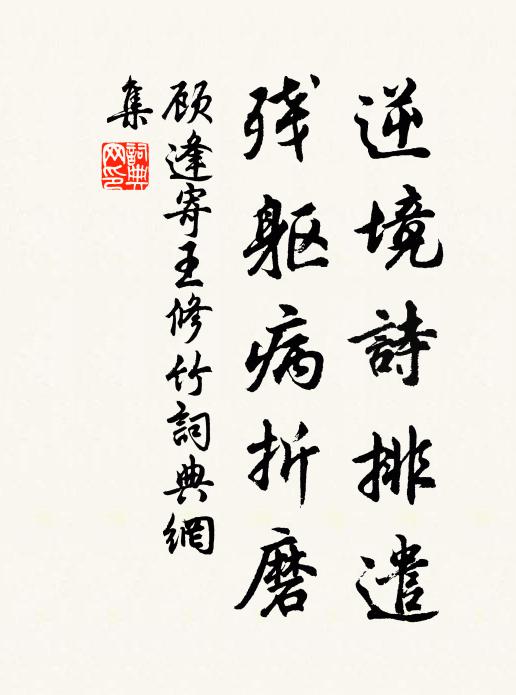 逆境詩排遣
残躯病折磨
顾逢寄王修竹詞典網
集
詞典网印